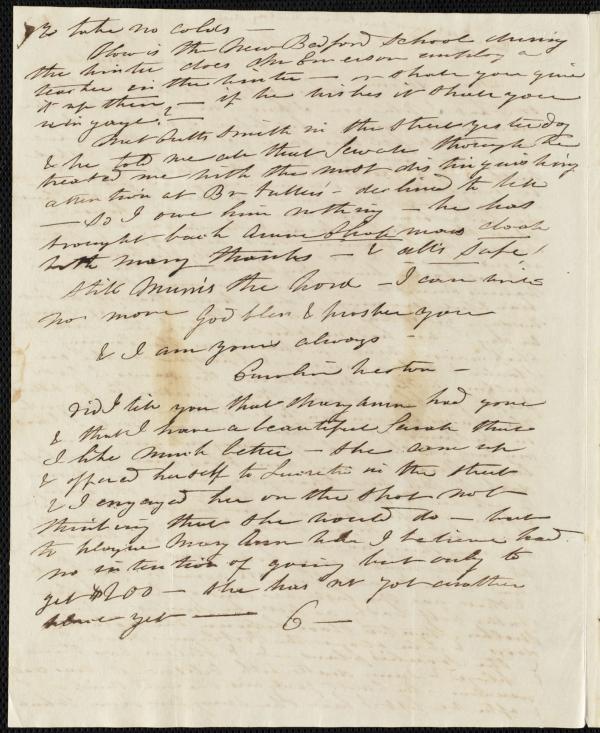 & take no colds —
How is the New Bedford School during
the winter does Mr Emerson employ a
teacher in the winter — or shall you give
it up then? — if he wishes it shall you
—
Met Smith in the street yesterday
& he told me all that Sewall through he
treated me with the most distinguishing
attention at Br Fuller's — declined to
— so I owe him nothing — he has
brought back Anne Shop mans cloak
with many thanks — & all's safe!
Still Mum's the word — I can write
no more God bless & prosper you
& I am yours always —
Caroline Weston —
Did I tell you that Mary Ann had gone
& that I have a beautiful Sarah that
I like much better — she came up
& offered herself to Lucretia in the street
& I engaged her on the spot not
thinking that she would do — but
to plague Mary Ann who I believe had
no intention of going but only to
get $200 — she has not got another
place yet — 6 —